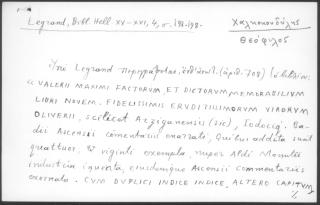 Legrand, Bibl. Hell. XV-XVI, 4, σ. 198-198.
Χαλκοκονδύλης
Θεόφιλος
Ὑπὸ Legrand περιγράφεται (ἀριθ. 708)
VALERII MAXIMI FACTORUM ET DICTORUM MEMORABILIUM
LIBRI NOVEM. FIDELISSIMIS ERUDITISSIMORUM VIRORUM
OLIVERII, scilicet Arzignanensis (sic), Jodocique Ba-
dii Ascensii comentariis enarrati, Quibus addita sunt
quattuor, & viginti exempla, nuper Aldi Manutii
industria inventa, eiusdemque Ascensii commentariis
exornata. CUM DUPLICI INDICE INDICE, ALTERO CAPITUM